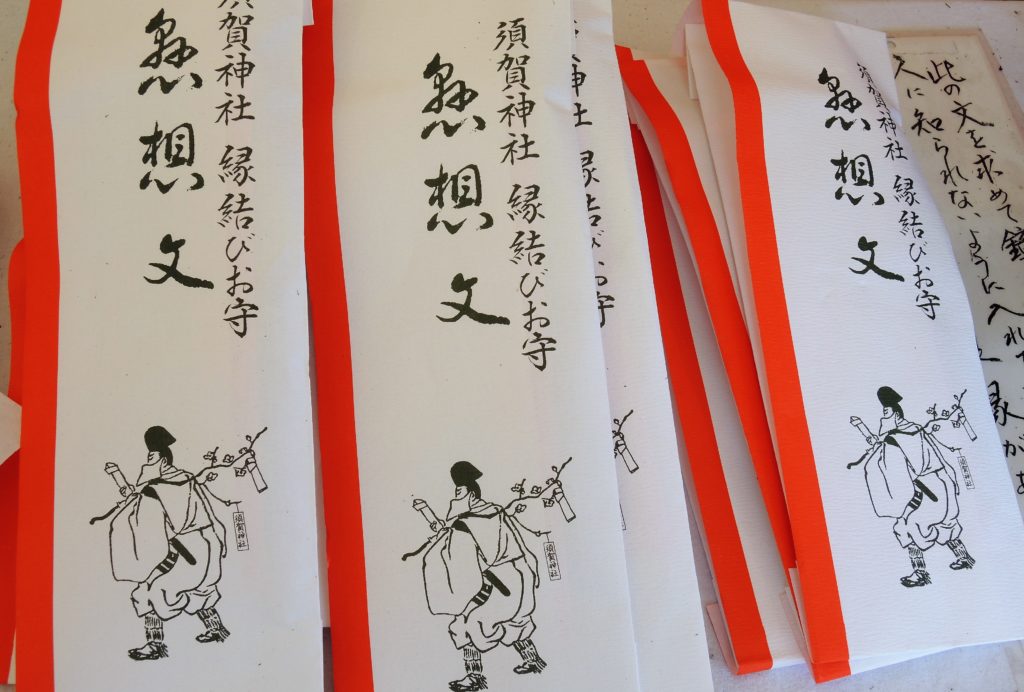 此の文を求めて鏡
人に知られないように入れ
縁があ
須賀神社 縁結びお守
懸想文
須賀神社
須賀神社 縁結びお守
懸想文
須賀神社
須賀神社 縁結びお守
懸想文
須賀神社